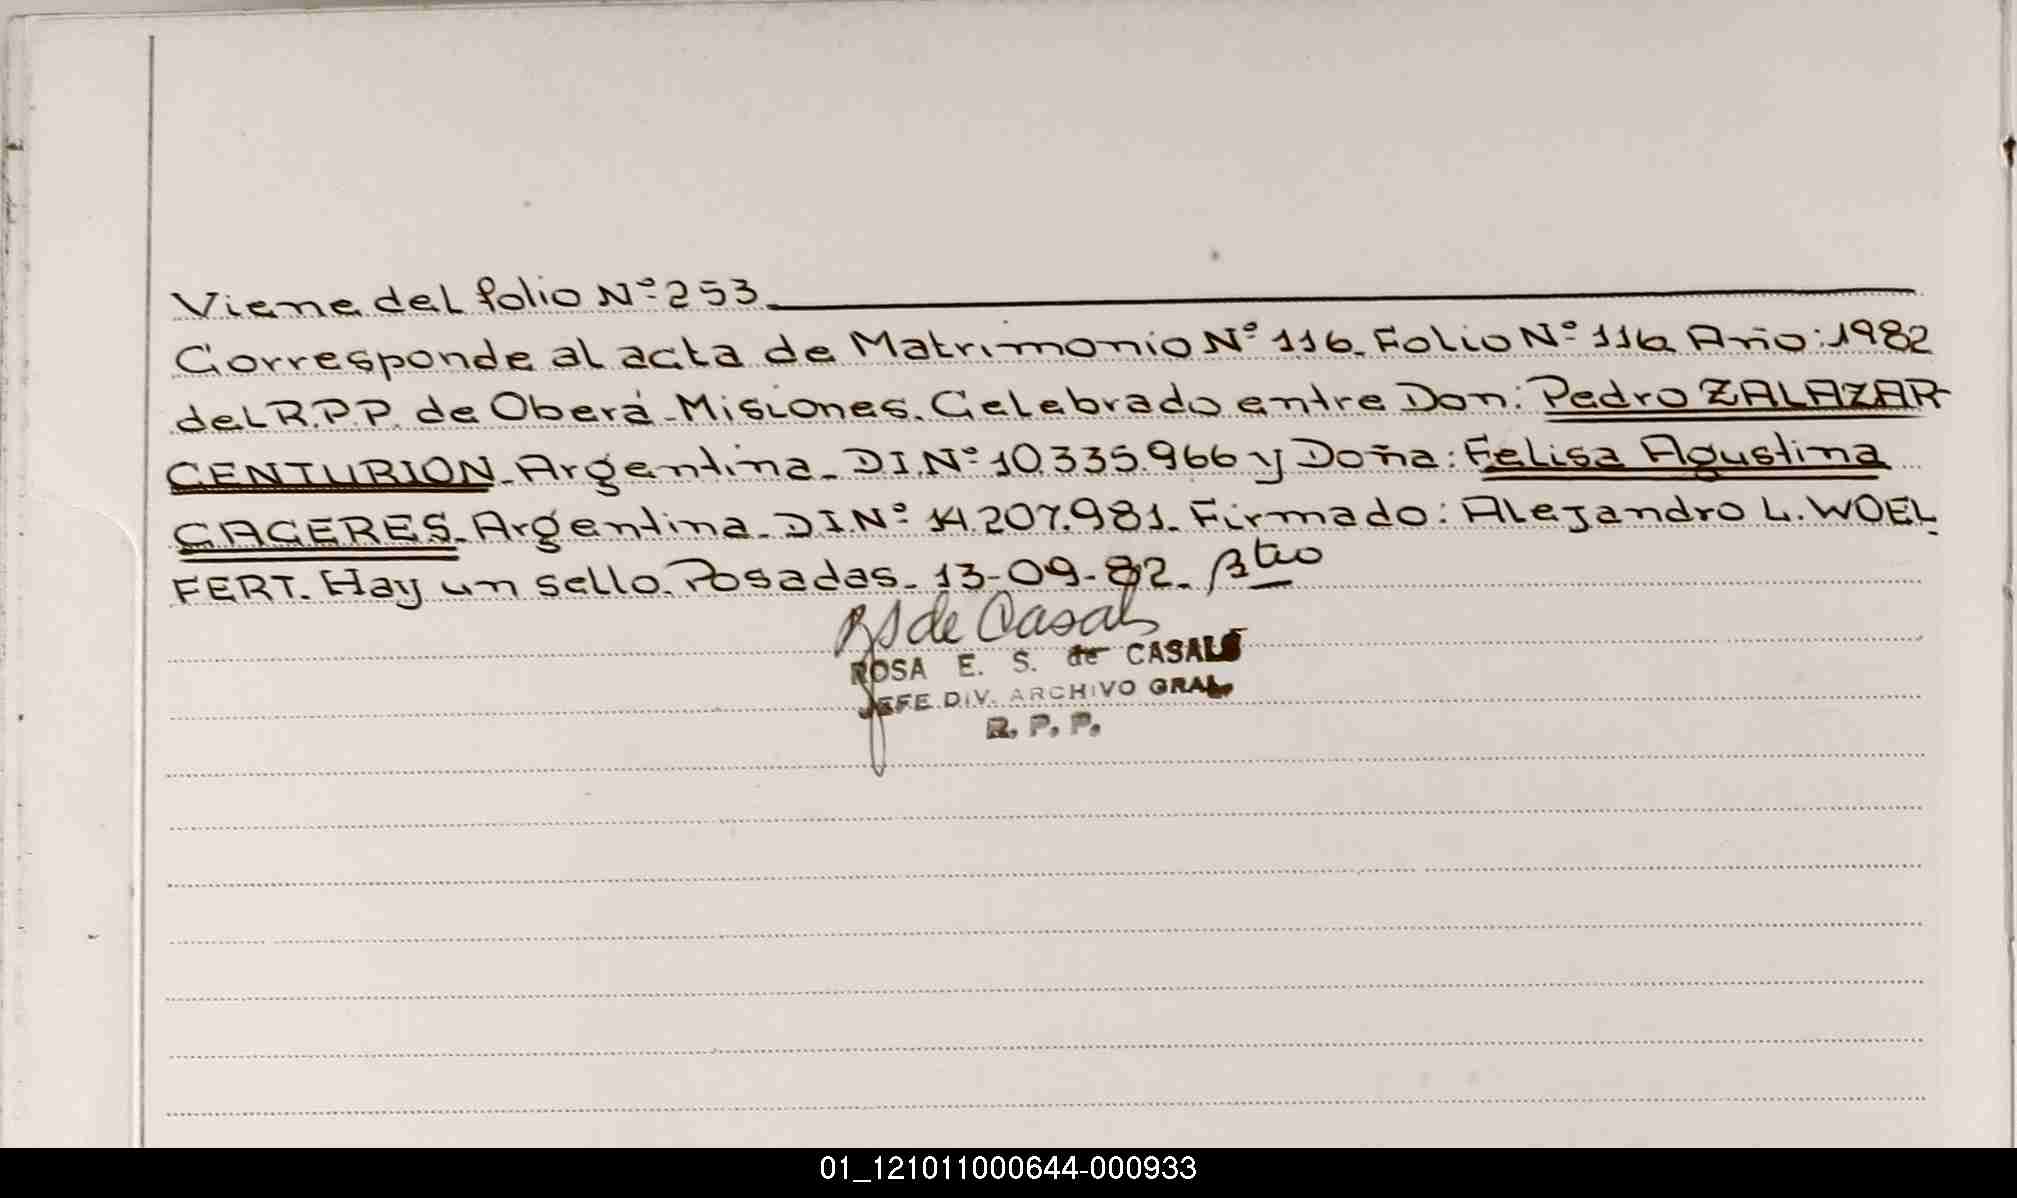 Viene del folio Nº 253
Corresponde al acta de Matrimonio Nº 116. Folio Nº 116 Año: 1982
del R.P.P. de Oberá - Misiones. Celebrado entre Don: Pedro ZALAZAR
CENTURION - Argentina - D.I.Nº 10.335.966 y Doña: Felisa Agustina
CACERES - Argentina - D.I.Nº 14.207.981. Firmado: Alejandro L. WOEL
FERT. Hay un sello. Posadas - 13-09-82.
de Casals
ROSA E. S. de CASALS
JEFE DIV. ARCHIVO GRAL.
R. P. P.
01_121011000644-000933